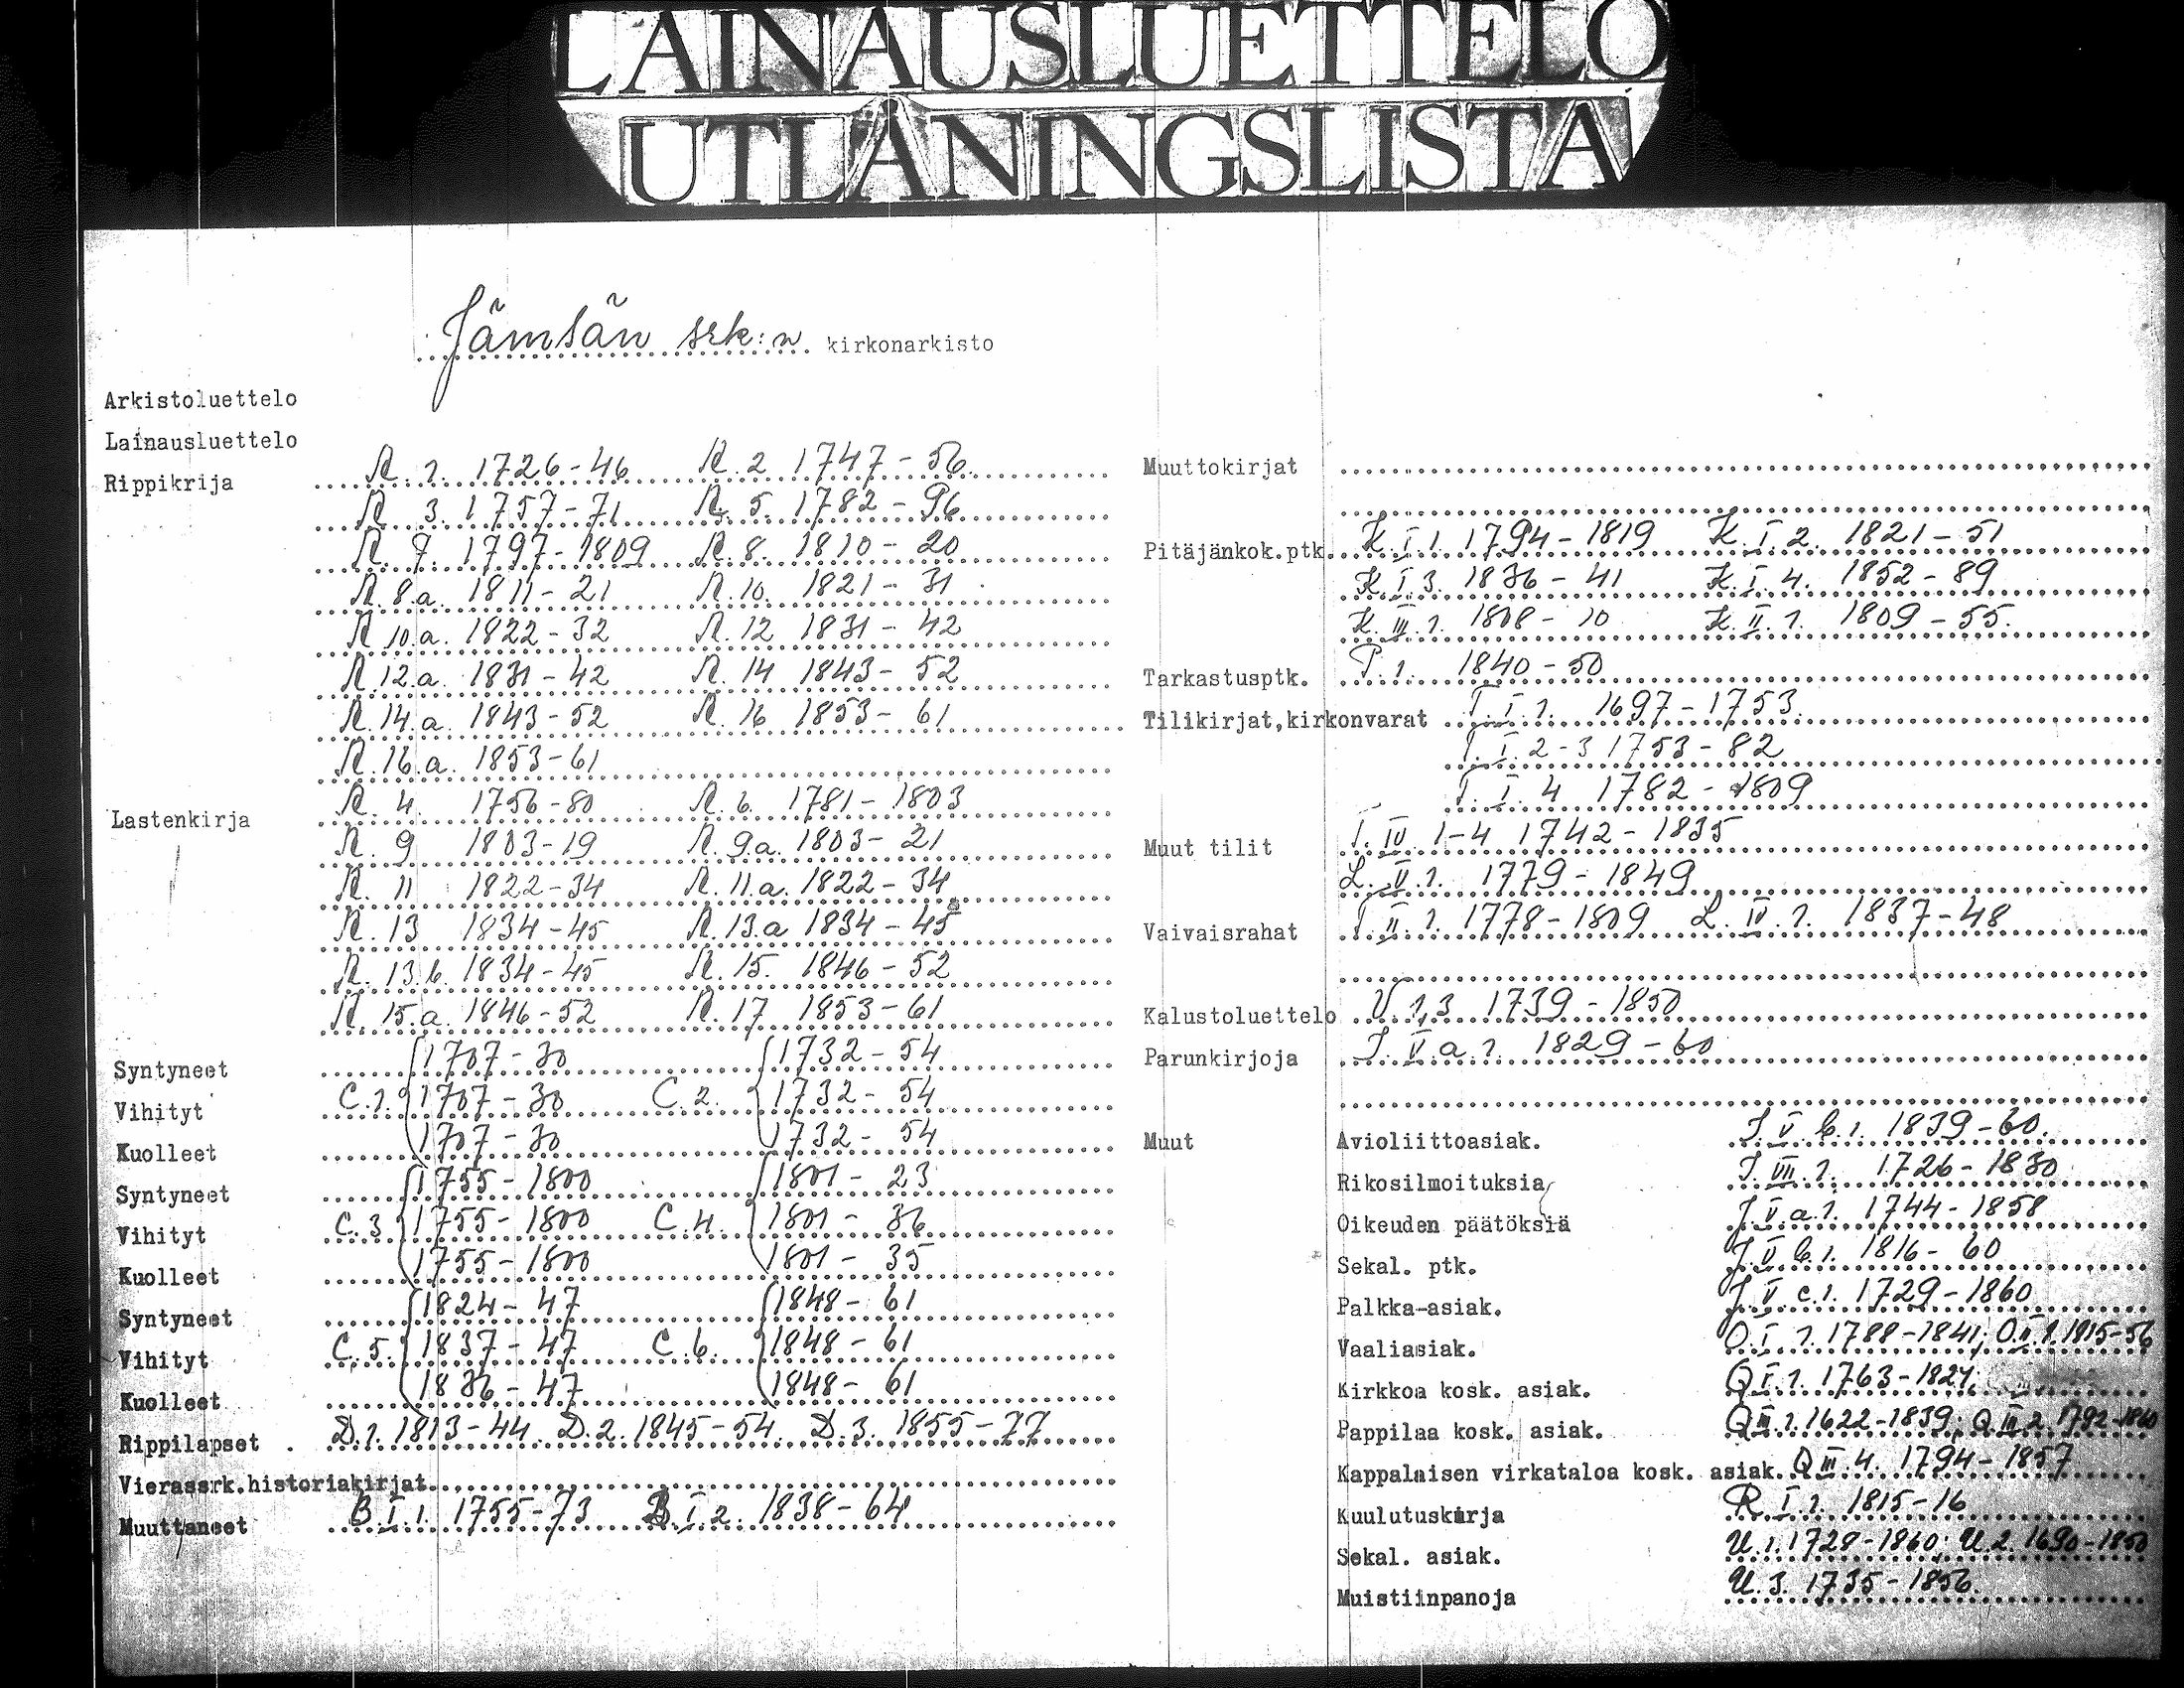 LAINAUSLUETTELO
UTLÅNINGSLISTA
Jämsän srk:n kirkonarkisto
Arkistoluettelo
Lainausluettelo
Rippikrija R. 1. 1726-46 R. 2 1747-56
R. 3. 1757-71 R. 5. 1782-96
R. 7. 1797-1809 R. 8. 1810-20
R. 8.a. 1811-21 R. 10. 1821-31
R 10.a. 1822-32 R. 12 1831-42
R. 12.a. 1831-42 R. 14 1843-52
R. 14.a. 1843-52 R. 16 1853-61
R. 16.a. 1853-61
Lastenkirja R. 4. 1756-80 R. 6. 1781-1803
R. 9 1803-19 R. 9.a. 1803-21
R. 11 1822-34 R. 11.a. 1822-34
R. 13 1834-45 R. 13.a 1834-45
R. 13.b. 1834-45 R. 15. 1846-52
R. 15.a. 1846-52 R. 17 1853-61
Syntyneet 1707-30 1732-54
Vihityt C.1. 1707-30 C.2. 1732-54
Kuolleet 1707-30 1732-54
Syntyneet 1755-1800 1801-23
Vihityt C.3. 1755-1800 C.4. 1801-36
Kuolleet 1755-1800 1801-35
Syntyneet 1824-47 1848-61
Vihityt C.5. 1837-47 C.6. 1848-61
Kuolleet 1836-47 1848-61
Rippilapset D.1. 1813-44. D.2. 1845-54. D.3. 1855-77
Vierassrk.historiakirjat
Muuttaneet B I.1. 1755-73 B.I.2. 1838-64
Muuttokirjat
Pitäjänkok.ptk. K.I.1. 1794-1819 K.I.2. 1821-51
K.I.3. 1836-41 K.I.4. 1852-89
K.III.1. 1808-10 K.II.1. 1809-55.
Tarkastusptk. P.1. 1840-50
Tilikirjat,kirkonvarat T.I.1. 1697-1753.
T.I.2-3 1753-82
T.I.4 1782-1809
Muut tilit T.IV. 1-4 1742-1835
L.V.1. 1779-1849
Vaivaisrahat T.II.1. 1778-1809 L.IV.1. 1837-48
Kalustoluettelo V.1,3. 1739-1850
Parunkirjoja J.V.a.1. 1829-60
Muut Avioliittoasiak. J.V.b.1. 1839-60.
Rikosilmoituksia J.VII.1. 1726-1830
Oikeuden päätöksiä J.V.a.1. 1744-1858
Sekal. ptk. J.V.b.1. 1816-60
Palkka-asiak. J.V.c.1. 1729-1860
Vaaliasiak. O.I.1. 1788-1841; O.II.1. 1815-56
Kirkkoa kosk. asiak. Q I.1. 1763-1824;
Pappilaa kosk. asiak. Q III.1. 1622-1839; Q.III.2. 1792-1860
Kappalaisen virkataloa kosk. asiak. Q III.4. 1794-1857
Kuulutuskirja R I.1. 1815-16
Sekal. asiak. U.1. 1728-1860; U.2. 1690-1850
Muistiinpanoja U.3. 1735-1856.